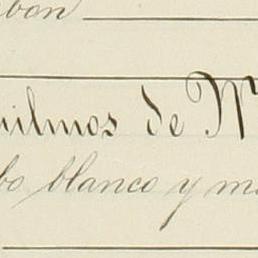 bon
uilmos de N
bo blanco y m